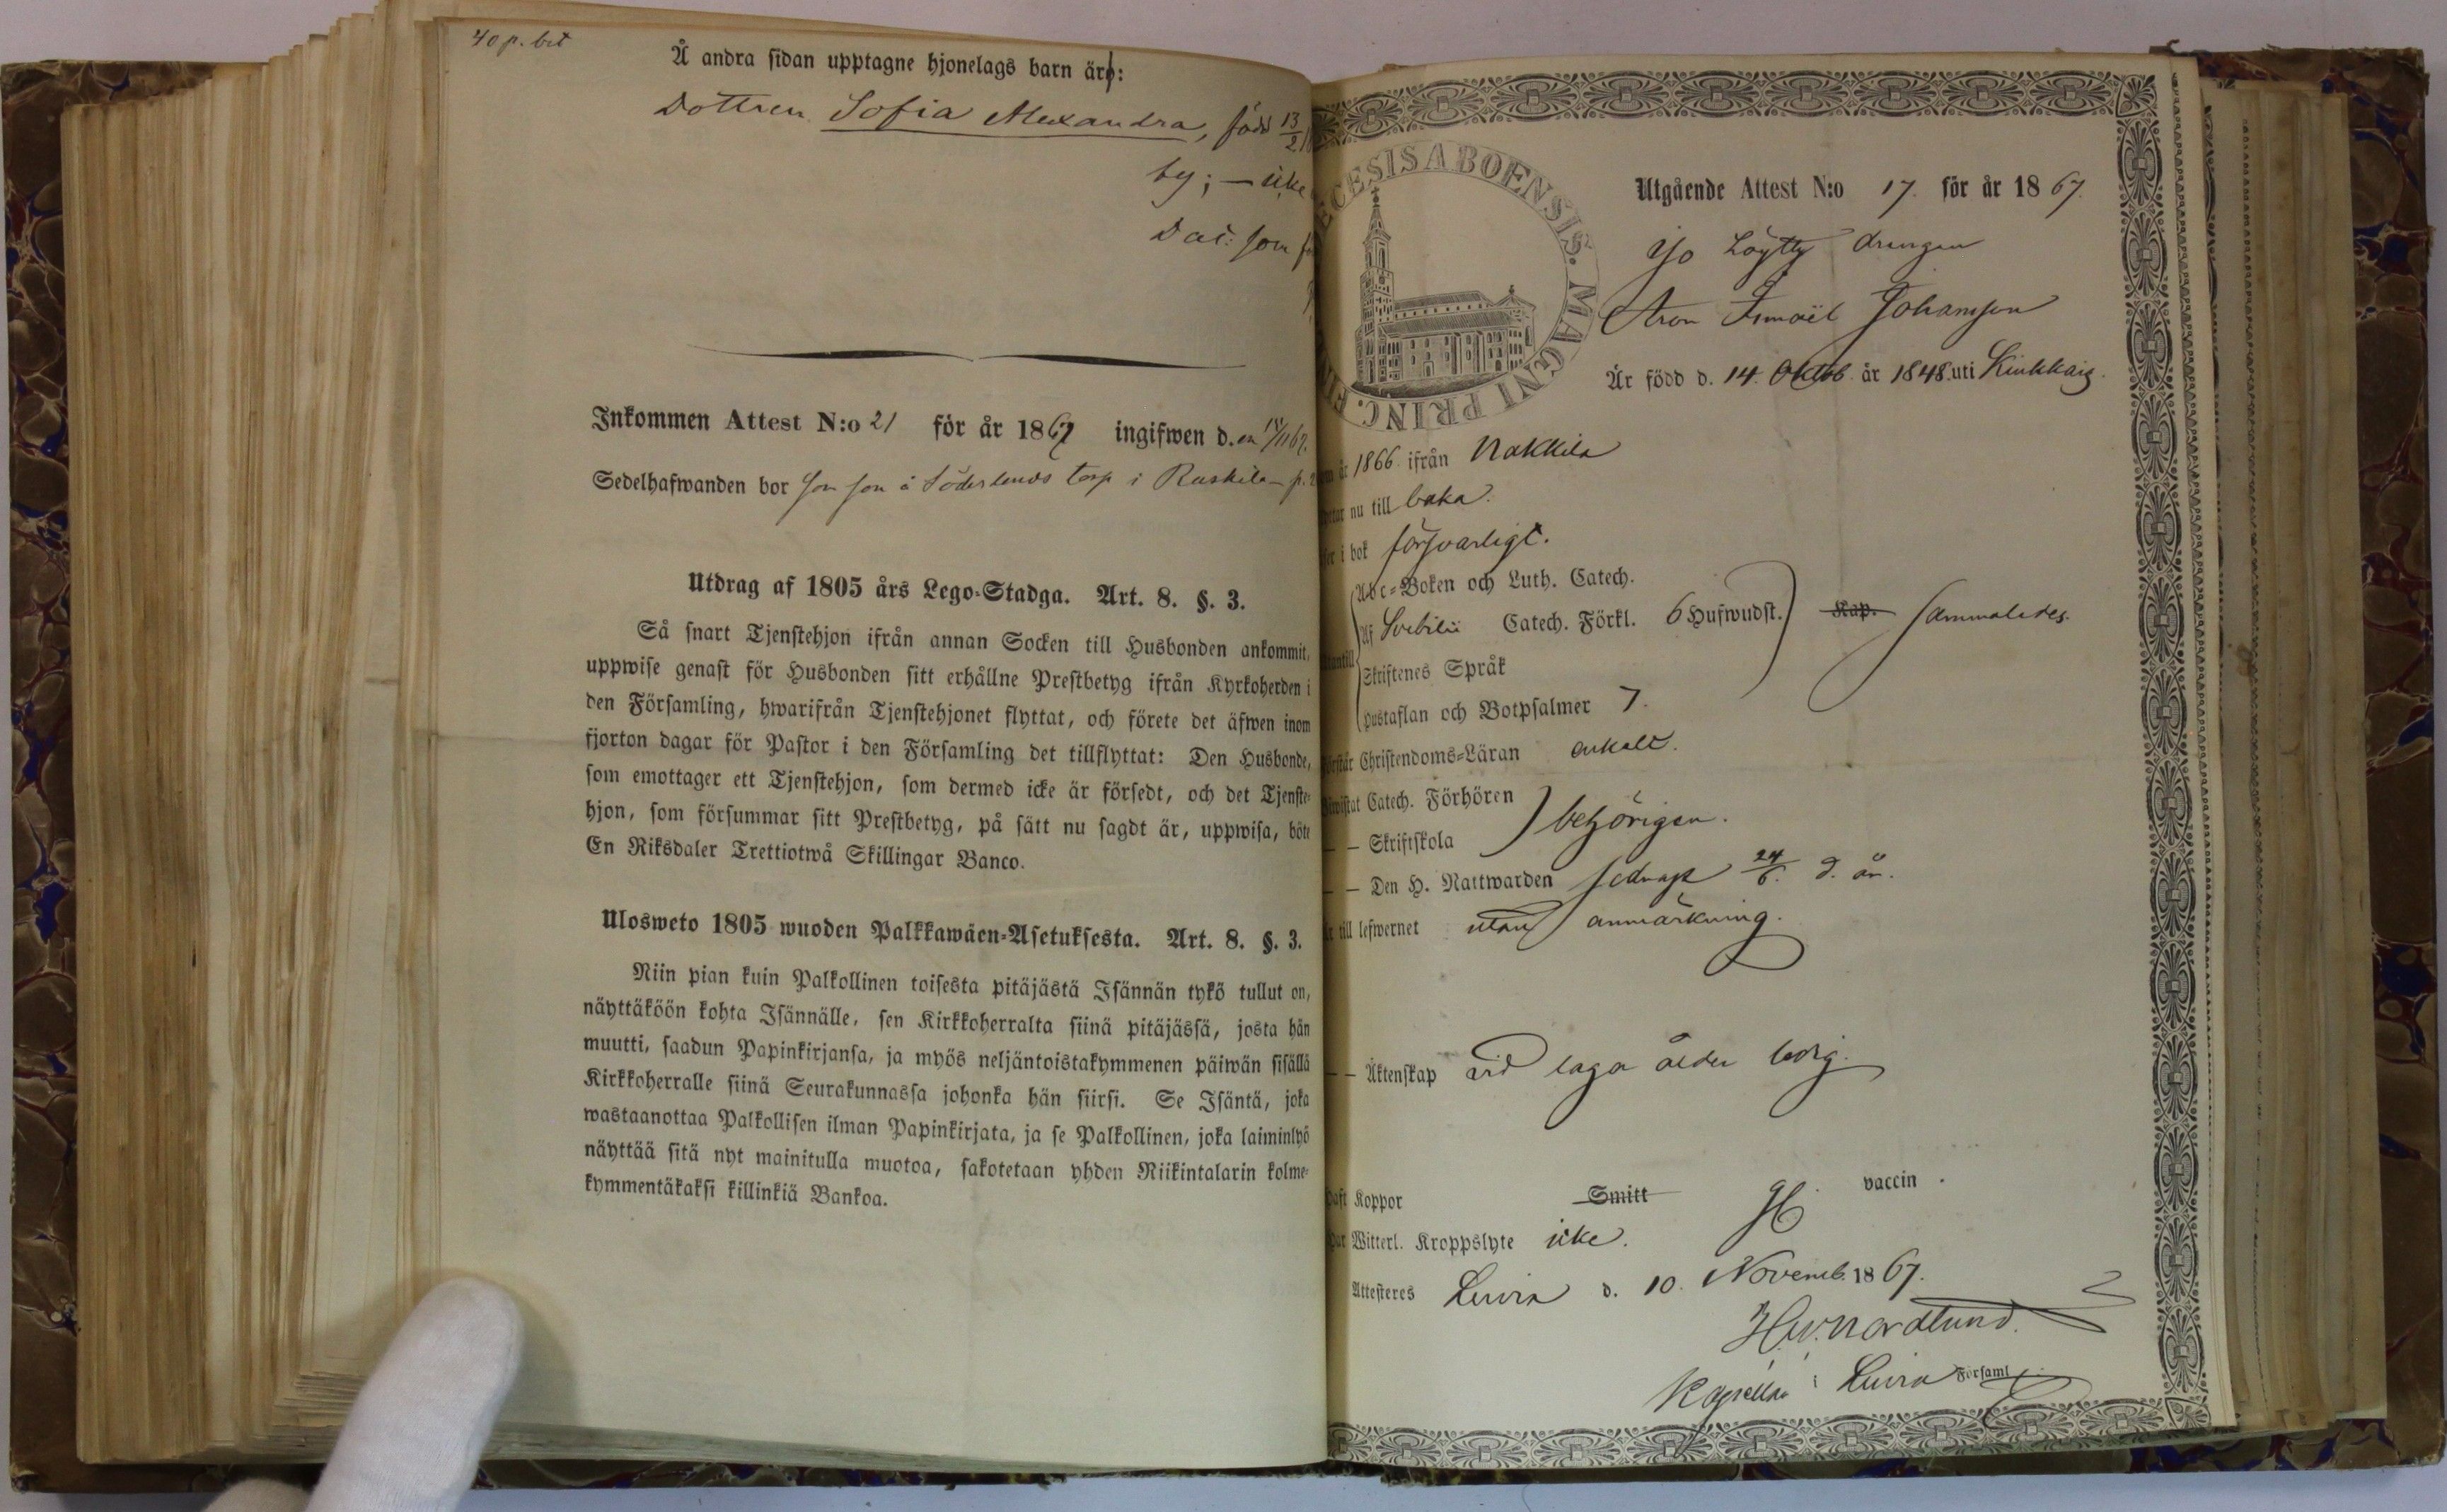 40 p. bet
Å andra sidan upptagne hjonelags barn äro:
Dottren Sofia Alexandra, född 13/2
by; — icke
Dat: som
Inkommen Attest N:o 21 för år 1867 ingifwen d. en 18/11 67.
Sedelhafwanden bor som son å Söderlunds torp i Ruskila – p.
Utdrag af 1805 års Lego-Stadga. Art. 8. §. 3.
Så snart Tjenstehjon ifrån annan Socken till Husbonden ankommit,
uppwise genast för Husbonden sitt erhållne Prestbetyg ifrån Kyrkoherden i
den Församling, hwarifrån Tjenstehjonet flyttat, och förete det äfwen inom
fjorton dagar för Pastor i den Församling det tillflyttat: Den Husbonde,
som emottager ett Tjenstehjon, som dermed icke är försedt, och det Tjenste-
hjon, som försummar sitt Prestbetyg, på sätt nu sagdt är, uppwisa, böte
En Riksdaler Trettiotwå Skillingar Banco.
Ulosweto 1805 wuoden Palkkawäen-Asetuksesta. Art. 8. §. 3.
Niin pian kuin Palkollinen toisesta pitäjästä Isännän tykö tullut on,
näyttäköön kohta Isännälle, sen Kirkkoherralta siinä pitäjässä, josta hän
muutti, saadun Papinkirjansa, ja myös neljäntoistakymmenen päiwän sisällä
Kirkkoherralle siinä Seurakunnassa johonka hän siirsi. Se Isäntä, joka
wastaanottaa Palkollisen ilman Papinkirjata, ja se Palkollinen, joka laiminlyö
näyttää sitä nyt mainitulla muotoa, sakotetaan yhden Riikintalarin kolme-
kymmentäkaksi killinkiä Bankoa.
ECESIS ABOENSIS. MAGNI PRINC. FIN
Utgående Attest N:o 17. för år 1867.
Löytty drengen
Aron Ismaël Johansson
Är född d. 14. Oktob. år 1848. uti Kiukkais.
år 1866 ifrån Nakkila
nu till baka.
i bok försvarligt.
Abc-Boken och Luth. Catech.
Af Svebilii Catech. Förkl. 6 Hufwudst. Kap. sammaledes.
Skriftenes Språk
Hustaflan och Botpsalmer 7.
Christendoms-Läran enkelt.
Catech. Förhören
— — Skriftskola behörigen.
— — Den H. Nattwarden sednast 24/6. d. år.
till lefwernet utan anmärkning.
— — Äktenskap vid laga ålder ledig.
Haft Koppor Smitt vaccin
Har Witterl. Kroppslyte icke.
Attesteres Luvia d. 10. Novemb. 1867.
Nordlund.
Kapellan i Luvia Församl